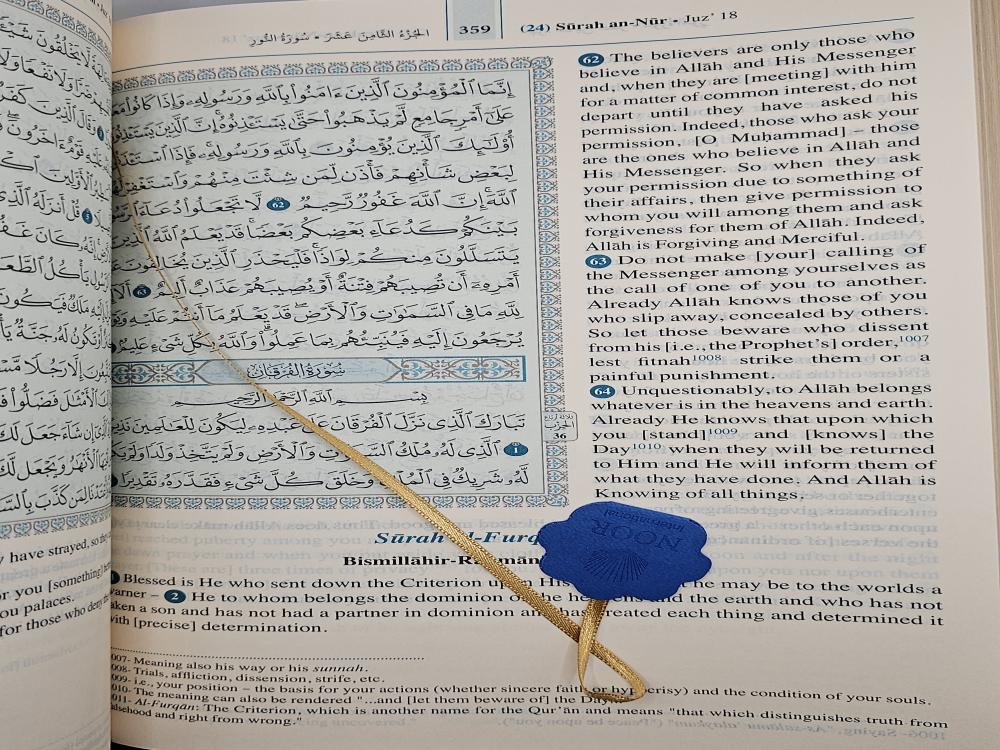 الجزء الثامن عشر • سورة النور
359
(24) Sūrah an-Nūr • Juz’ 18
إِنَّمَا ٱلْمُؤْمِنُونَ ٱلَّذِينَ ءَامَنُوا۟ بِٱللَّهِ وَرَسُولِهِۦ وَإِذَا كَانُوا۟ مَعَهُۥ
عَلَىٰٓ أَمْرٍ جَامِعٍ لَّمْ يَذْهَبُوا۟ حَتَّىٰ يَسْتَـْٔذِنُوهُ إِنَّ ٱلَّذِينَ يَسْتَـْٔذِنُونَكَ
أُو۟لَـٰٓئِكَ ٱلَّذِينَ يُؤْمِنُونَ بِٱللَّهِ وَرَسُولِهِۦ فَإِذَا ٱسْتَـْٔذَنُوكَ
لِبَعْضِ شَأْنِهِمْ فَأْذَن لِّمَن شِئْتَ مِنْهُمْ وَٱسْتَغْفِرْ لَهُمُ
ٱللَّهَ إِنَّ ٱللَّهَ غَفُورٌ رَّحِيمٌ 62 لَّا تَجْعَلُوا۟ دُعَآءَ ٱلرَّسُولِ
بَيْنَكُمْ كَدُعَآءِ بَعْضِكُم بَعْضًا قَدْ يَعْلَمُ ٱللَّهُ ٱلَّذِينَ
يَتَسَلَّلُونَ مِنكُمْ لِوَاذًا فَلْيَحْذَرِ ٱلَّذِينَ يُخَالِفُونَ عَنْ
أَمْرِهِۦٓ أَن تُصِيبَهُمْ فِتْنَةٌ أَوْ يُصِيبَهُمْ عَذَابٌ أَلِيمٌ 63 أَلَآ إِنَّ
لِلَّهِ مَا فِى ٱلسَّمَـٰوَٰتِ وَٱلْأَرْضِ قَدْ يَعْلَمُ مَآ أَنتُمْ عَلَيْهِ وَيَوْمَ
يُرْجَعُونَ إِلَيْهِ فَيُنَبِّئُهُم بِمَا عَمِلُوا۟ وَٱللَّهُ بِكُلِّ شَىْءٍ عَلِيمٌۢ
سُورَةُ الفُرْقَانِ
بِسْمِ ٱللَّهِ ٱلرَّحْمَـٰنِ ٱلرَّحِيمِ
تَبَارَكَ ٱلَّذِى نَزَّلَ ٱلْفُرْقَانَ عَلَىٰ عَبْدِهِۦ لِيَكُونَ لِلْعَـٰلَمِينَ نَذِيرًا
1 ٱلَّذِى لَهُۥ مُلْكُ ٱلسَّمَـٰوَٰتِ وَٱلْأَرْضِ وَلَمْ يَتَّخِذْ وَلَدًا وَلَمْ يَكُن
لَّهُۥ شَرِيكٌ فِى ٱلْمُلْكِ وَخَلَقَ كُلَّ شَىْءٍ فَقَدَّرَهُۥ تَقْدِيرًا
36
62 The believers are only those who
believe in Allāh and His Messenger
and, when they are [meeting] with him
for a matter of common interest, do not
depart until they have asked his
permission. Indeed, those who ask your
permission, [O Muḥammad] – those
are the ones who believe in Allāh and
His Messenger. So when they ask
your permission due to something of
their affairs, then give permission to
whom you will among them and ask
forgiveness for them of Allāh. Indeed,
Allāh is Forgiving and Merciful.
63 Do not make [your] calling of
the Messenger among yourselves as
the call of one of you to another.
Already Allāh knows those of you
who slip away, concealed by others.
So let those beware who dissent
from his [i.e., the Prophet's] order,1007
lest fitnah1008 strike them or a
painful punishment.
64 Unquestionably, to Allāh belongs
whatever is in the heavens and earth.
Already He knows that upon which
you [stand]1009 and [knows] the
Day1010 when they will be returned
to Him and He will inform them of
what they have done. And Allāh is
Knowing of all things.
NOOR
International
Sūrah al-Furq
Bismillāhir-Raḥmān
Blessed is He who sent down the Criterion upon His he may be to the worlds a
warner – 2 He to whom belongs the dominion of the heavens and the earth and who has not
taken a son and has not had a partner in dominion and has created each thing and determined it
with [precise] determination.
1007- Meaning also his way or his sunnah.
1008- Trials, affliction, dissension, strife, etc.
1009- i.e., your position – the basis for your actions (whether sincere faith or hypocrisy) and the condition of your souls.
1010- The meaning can also be rendered "...and [let them beware of] the Day
1011- Al-Furqān: The Criterion, which is another name for the Qur'ān and means "that which distinguishes truth from
falsehood and right from wrong."
y have strayed, so the
or you [something]
ou palaces.
for those who deny the